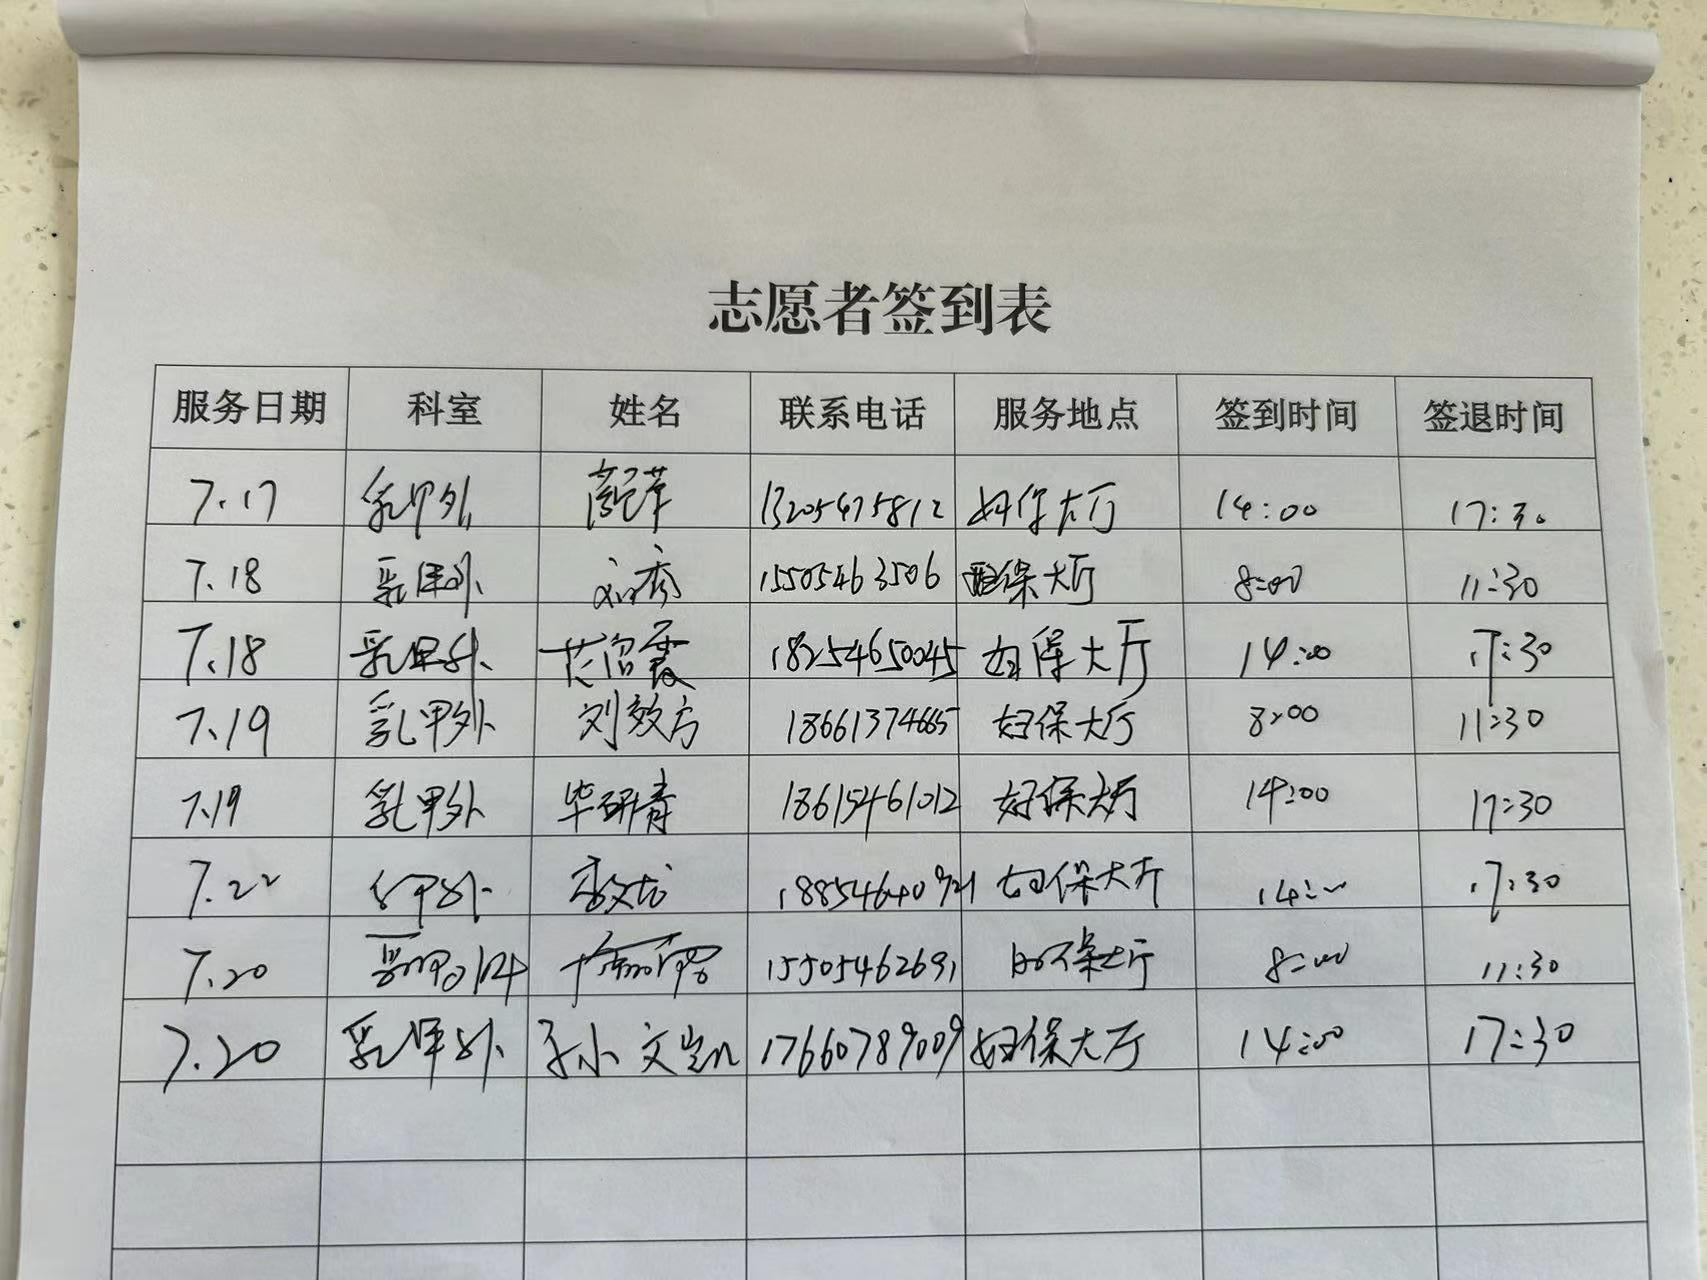 志愿者签到表
服务日期 科室 姓名 联系电话 服务地点 签到时间 签退时间
7.17 乳甲外 13205475812 妇保大厅 14:00 17:30
7.18 乳甲外 15505463506 妇保大厅 8:00 11:30
7.18 乳甲外 18254650045 妇保大厅 14:00 17:30
7.19 乳甲外 刘效方 18661374665 妇保大厅 8:00 11:30
7.19 乳甲外 毕研青 18615461012 妇保大厅 14:00 17:30
7.22 乳甲外 妇保大厅 14:00 17:30
7.20 15505462691 妇保大厅 8:00 11:30
7.20 乳甲外 孙文凯 17660789009 妇保大厅 14:00 17:30